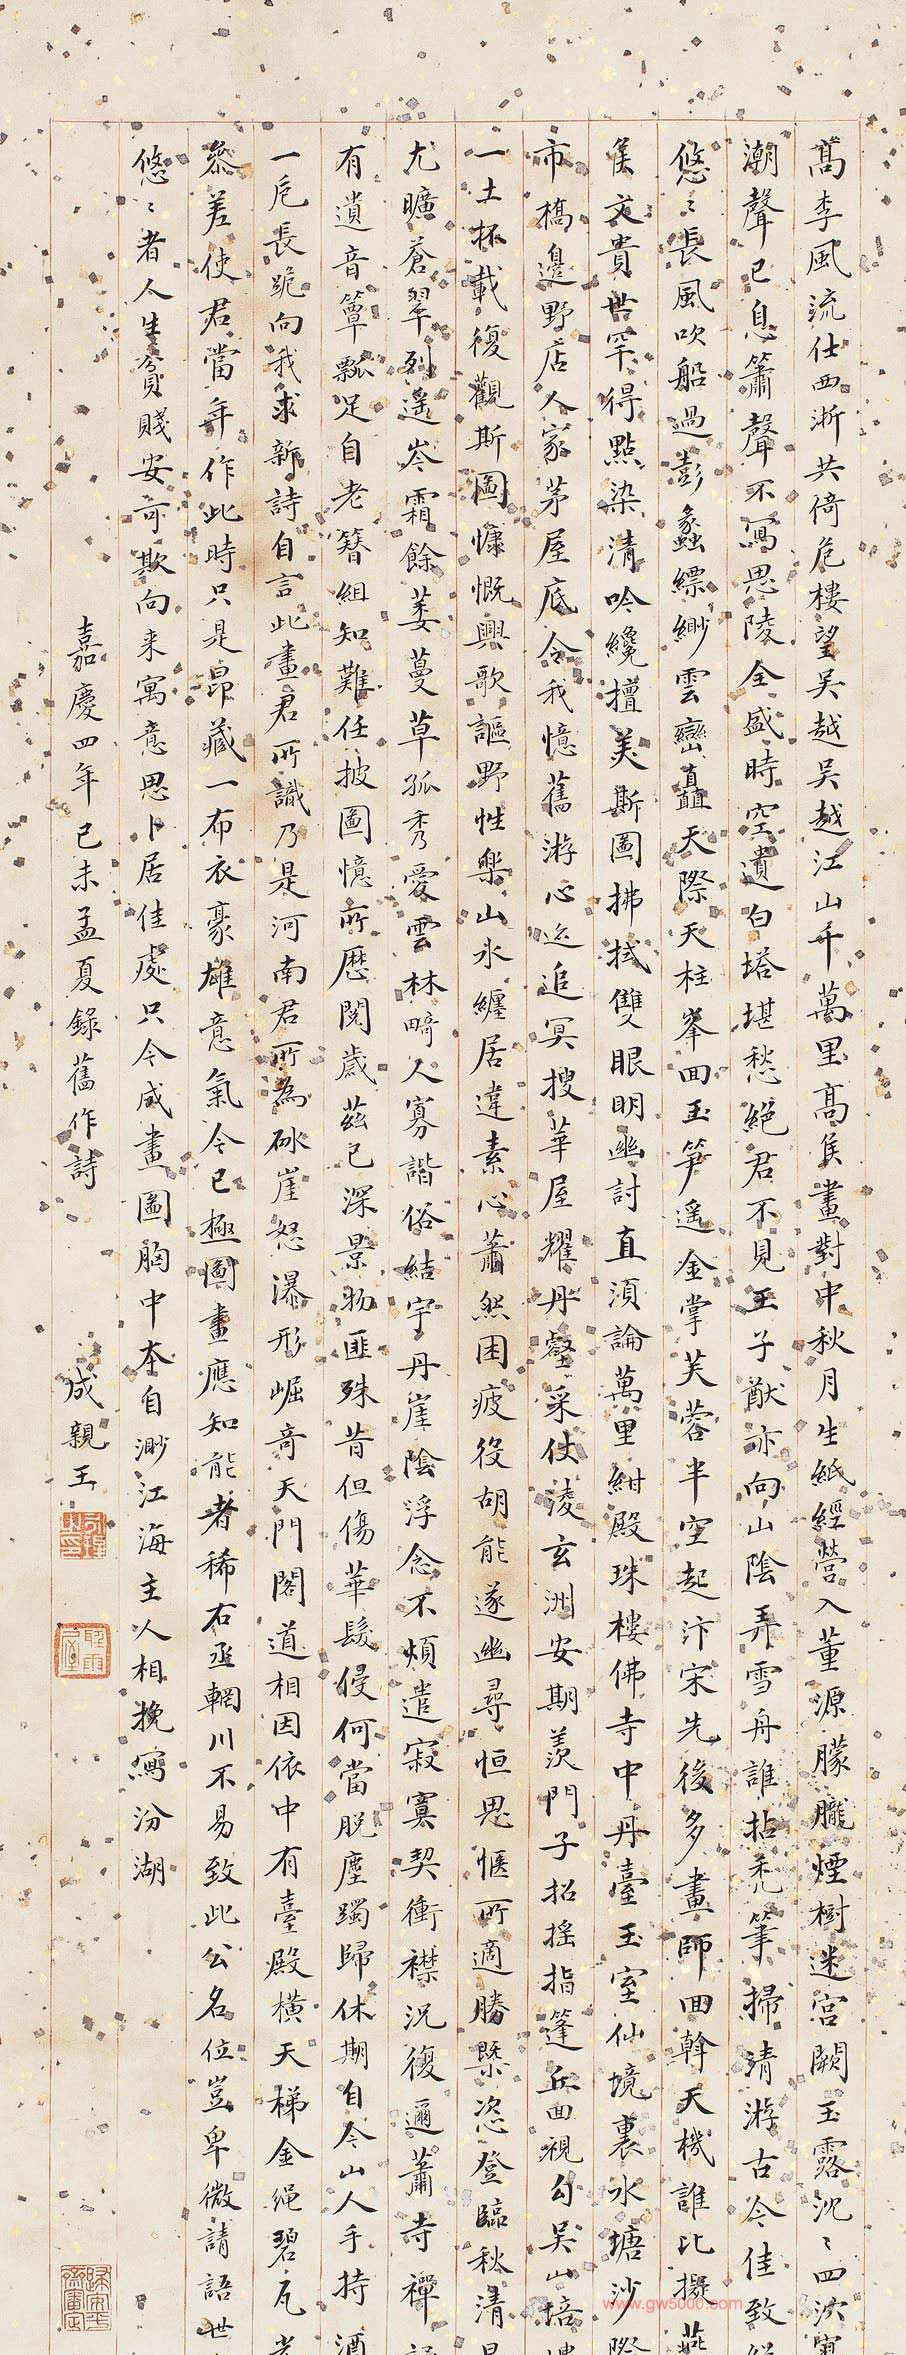 髙李風流仕西浙共倚危樓望吳越吳越江山千萬里髙侯畫對中秋月生紙經營入董源朦朧煙樹迷宫闕玉露沈〻四次寥
潮聲已息簫聲不寫思陵全盛時空遺白塔堪愁絕君不見王子猷亦向山陰弄雪舟誰拈禿筆掃清游古今佳致
悠〻長風吹船過彭蠡縹緲雲巒矗天際天柱峯回玉笋遥金掌芙蓉半空起汴宋先後多畫師回斡天機誰比擬燕
侯文貴世罕得點染清吟纔擅美斯圖拂拭雙眼眀幽討直須論萬里紺殿珠樓佛寺中丹臺玉室仙境裏水塘沙際
市橋邊野店人家茅屋底令我憶舊游心迄追冥搜華屋耀丹壑采仗淩玄洲安期羡門子招摇指蓬丘面視勾吴山培塿
一土杯載復觀斯圖慷慨興歌謳野性樂山水纏居違素心蕭然困疲役胡能遂幽尋恒思愜所適勝槩恣登臨秋清
尤曠蒼翠列遥岑霜餘萎蔓草孤秀愛雲林畸人寡諧俗結宇丹崖陰浮念不煩遣寂寞契衝襟況復邇蕭寺禪
有遺音簞瓢足自老簪組知難任披圖憶所歷閱歲茲已深景物匪殊昔但傷華髮侵何當脱塵躅歸休期自今山人手持酒
一卮長跪向我求新詩自言此畫君所識乃是河南君所為砅崖怒瀑形崛奇天門閣道相因依中有臺殿横天梯金繩碧瓦
叅差使君當年作此時只是昂藏一布衣豪雄意氣今已極圖畫應知能者稀右丞輞川不易致此公名位豈卑微請語世
悠〻者人生貧賤安可欺向来寓意思卜居佳處只今成畫圖胸中本自渺江海主人相挽寫汾湖
嘉慶四年己未孟夏錄舊作詩
成親王
www.gw5000.com